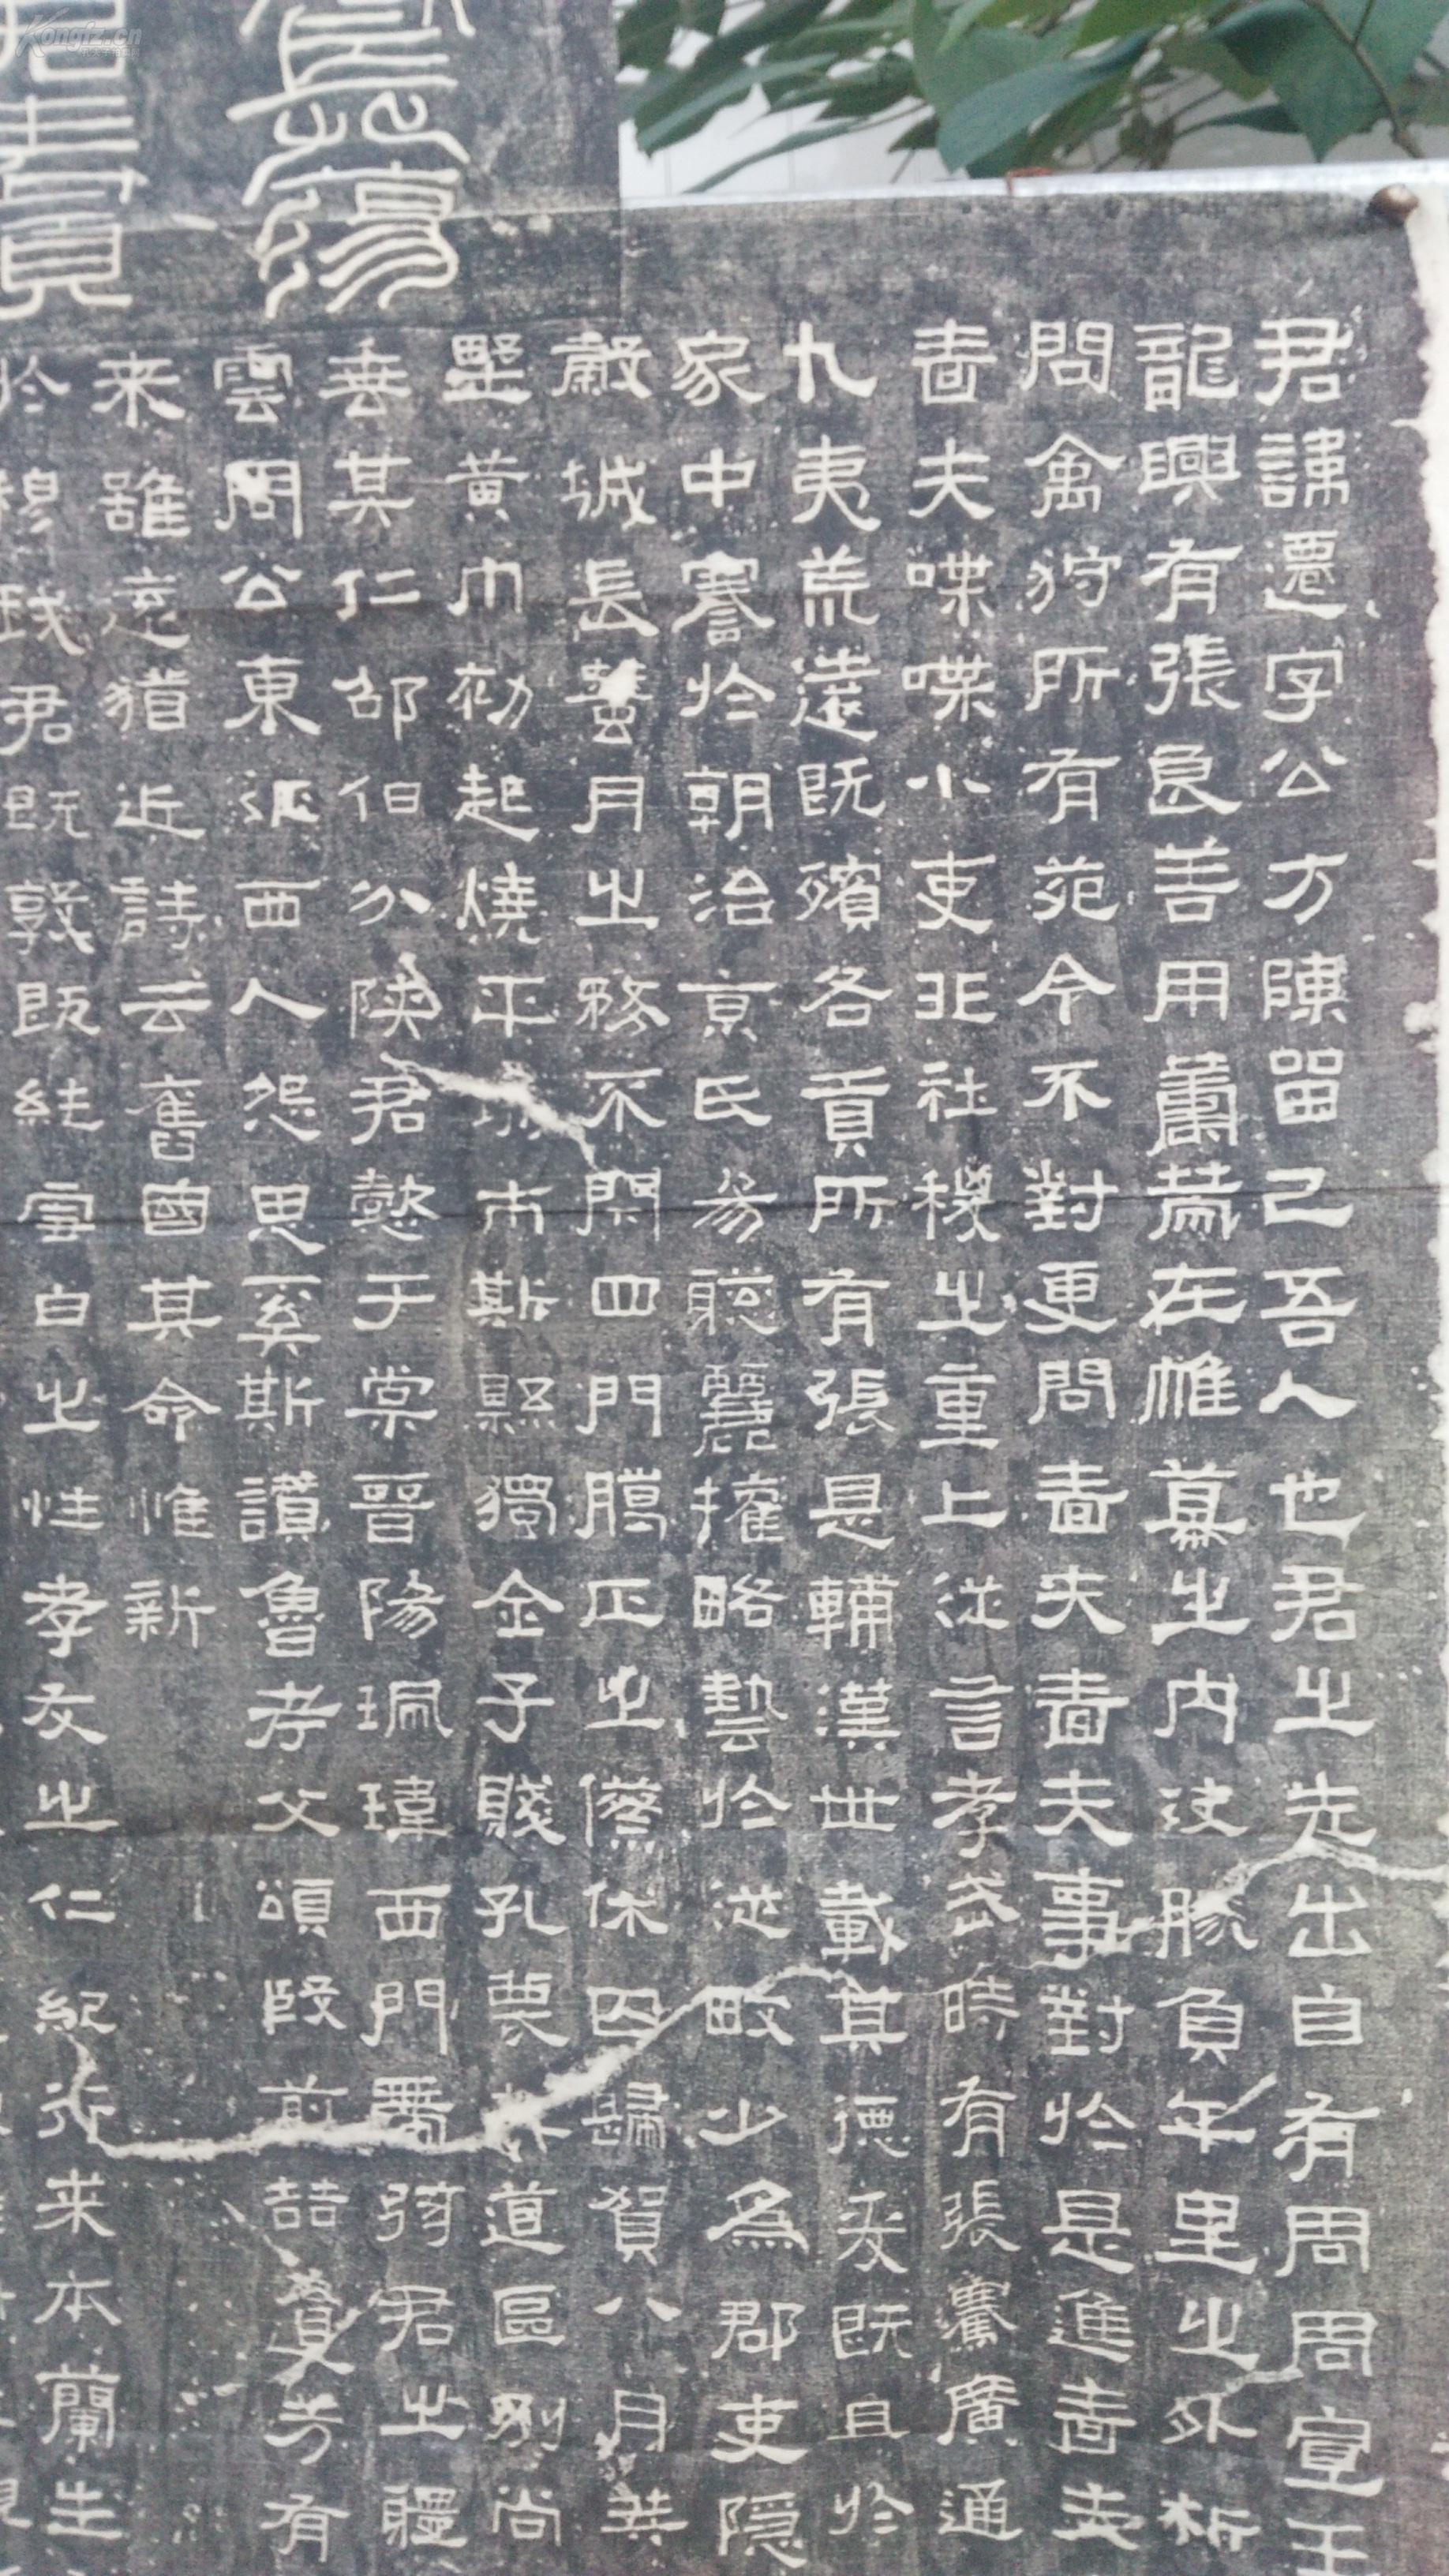 君諱遷字公方陳留己吾人也君之先出自有周周宣王
龍興有張良善用籌策在帷幕之内決勝負千里之外析
問禽狩所有苑令不對更問嗇夫嗇夫事對於是進嗇夫
嗇夫喋喋小吏非社稷之重上從言孝武時有張騫廣通
九夷荒遠既殯各貢所有張是輔漢世載其德爰既且於
家中謇於朝治京氏易聰麗權略藝於從畋少為郡吏隱
穀城長蠶月之務不閉四門臘正之僚休囚歸賀八月
野黃巾初起燒平城市斯縣獨全子賤孔蔑其道區別尚
垂其仁邵伯分陝君懿于棠晉陽珮瑋西門帶弦君之體
雲周公東征西人怨思奚斯讚魯考父頌殷前喆遺芳有
来雖遠猶近詩云舊國其命惟新
於穆我君既敦既純雪白之性孝友之仁紀行来本蘭生
Kongfz.cn